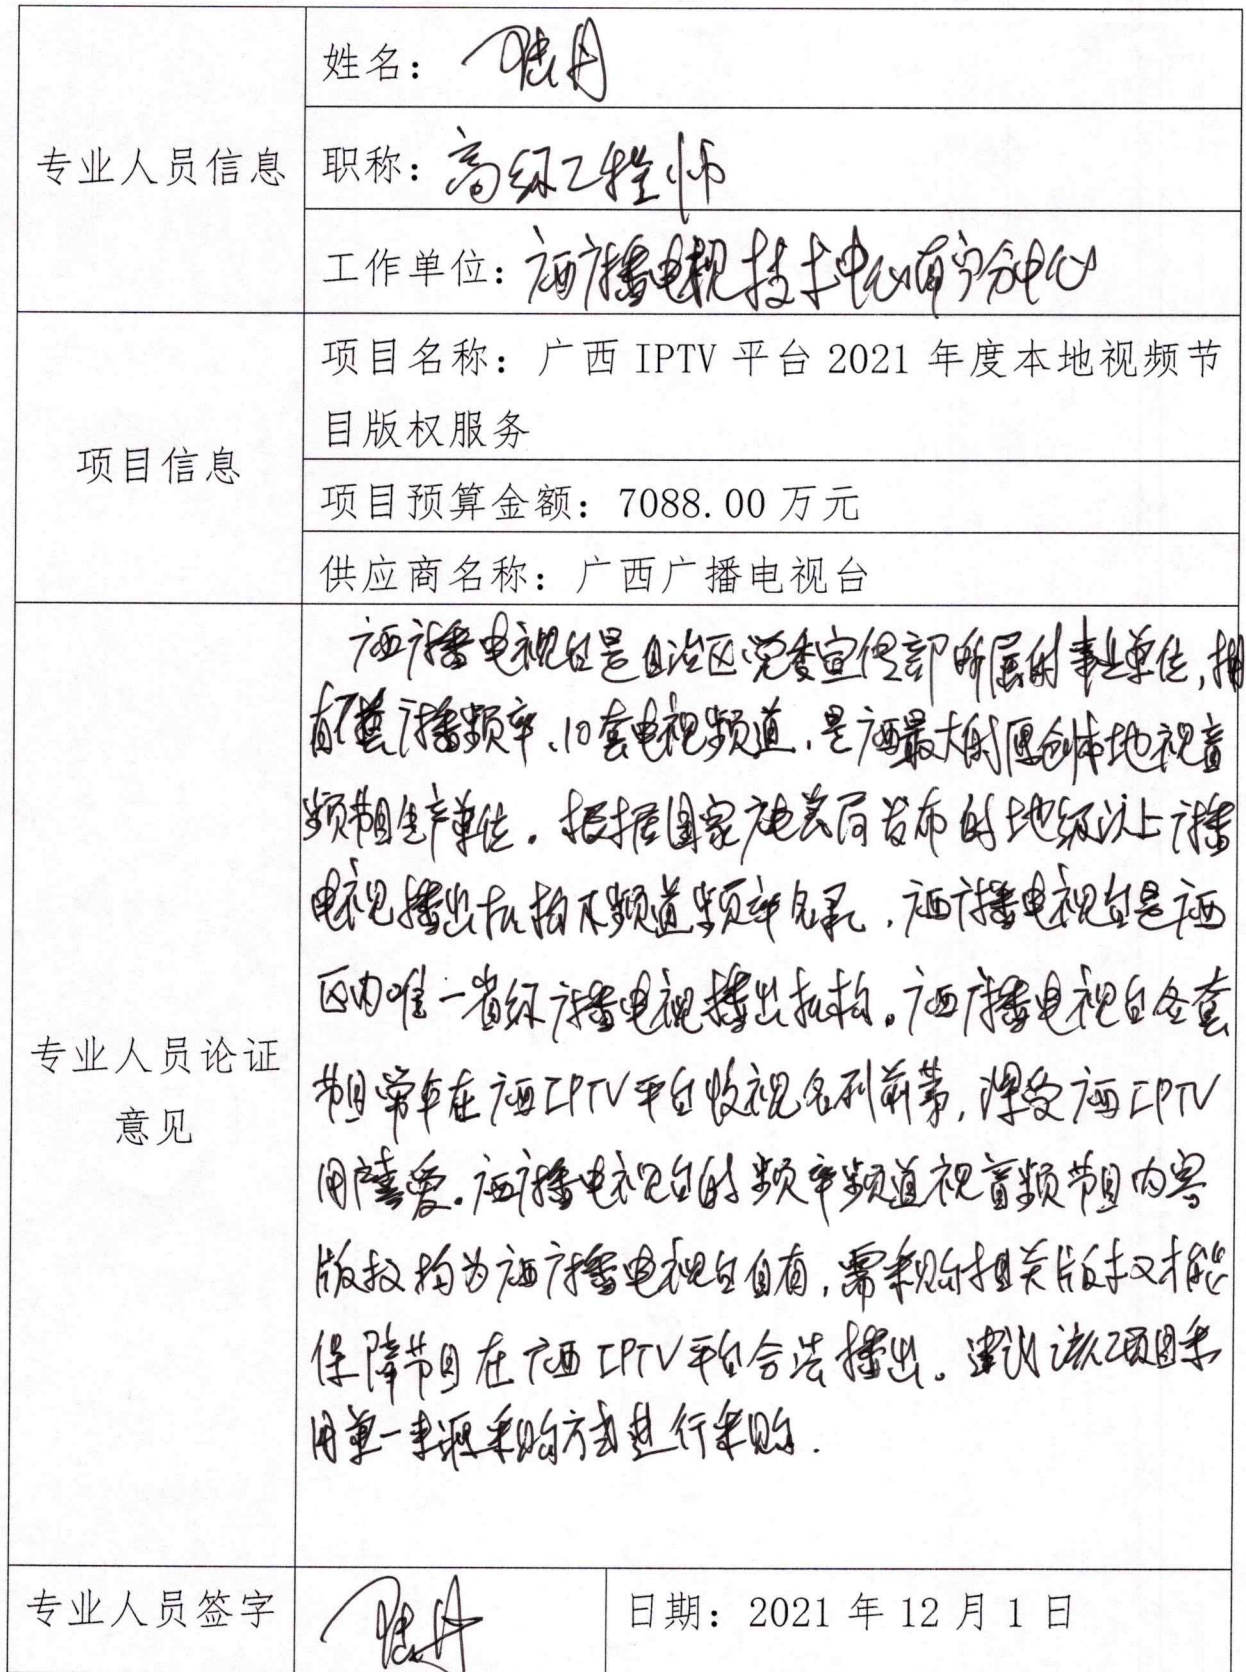 姓名：
专业人员信息
职称：高级工程师
工作单位：广西广播电视技术中心南宁分中心
项目信息
项目名称：广西 IPTV 平台 2021 年度本地视频节
目版权服务
项目预算金额：7088.00 万元
供应商名称：广西广播电视台
专业人员论证
意见
广西广播电视台是自治区党委宣传部所属的事业单位，拥
有 套广播频率、10套电视频道，是广西最大的原创本地视音
频节目生产单位。根据国家广电总局发布的地级以上广播
电视播出机构及频道频率名录，广西广播电视台是广西
区内唯一省级广播电视播出机构。广西广播电视台各套
节目常年在广西IPTV平台收视名列前茅，深受广西IPTV
用户喜爱。广西广播电视台的频率频道视音频节目内容
版权均为广西广播电视台自有，需采购相关版权才能
保障节目在广西IPTV平台合法播出。建议该项目采
用单一来源采购方式进行采购.
专业人员签字
日期：2021 年 12 月 1 日